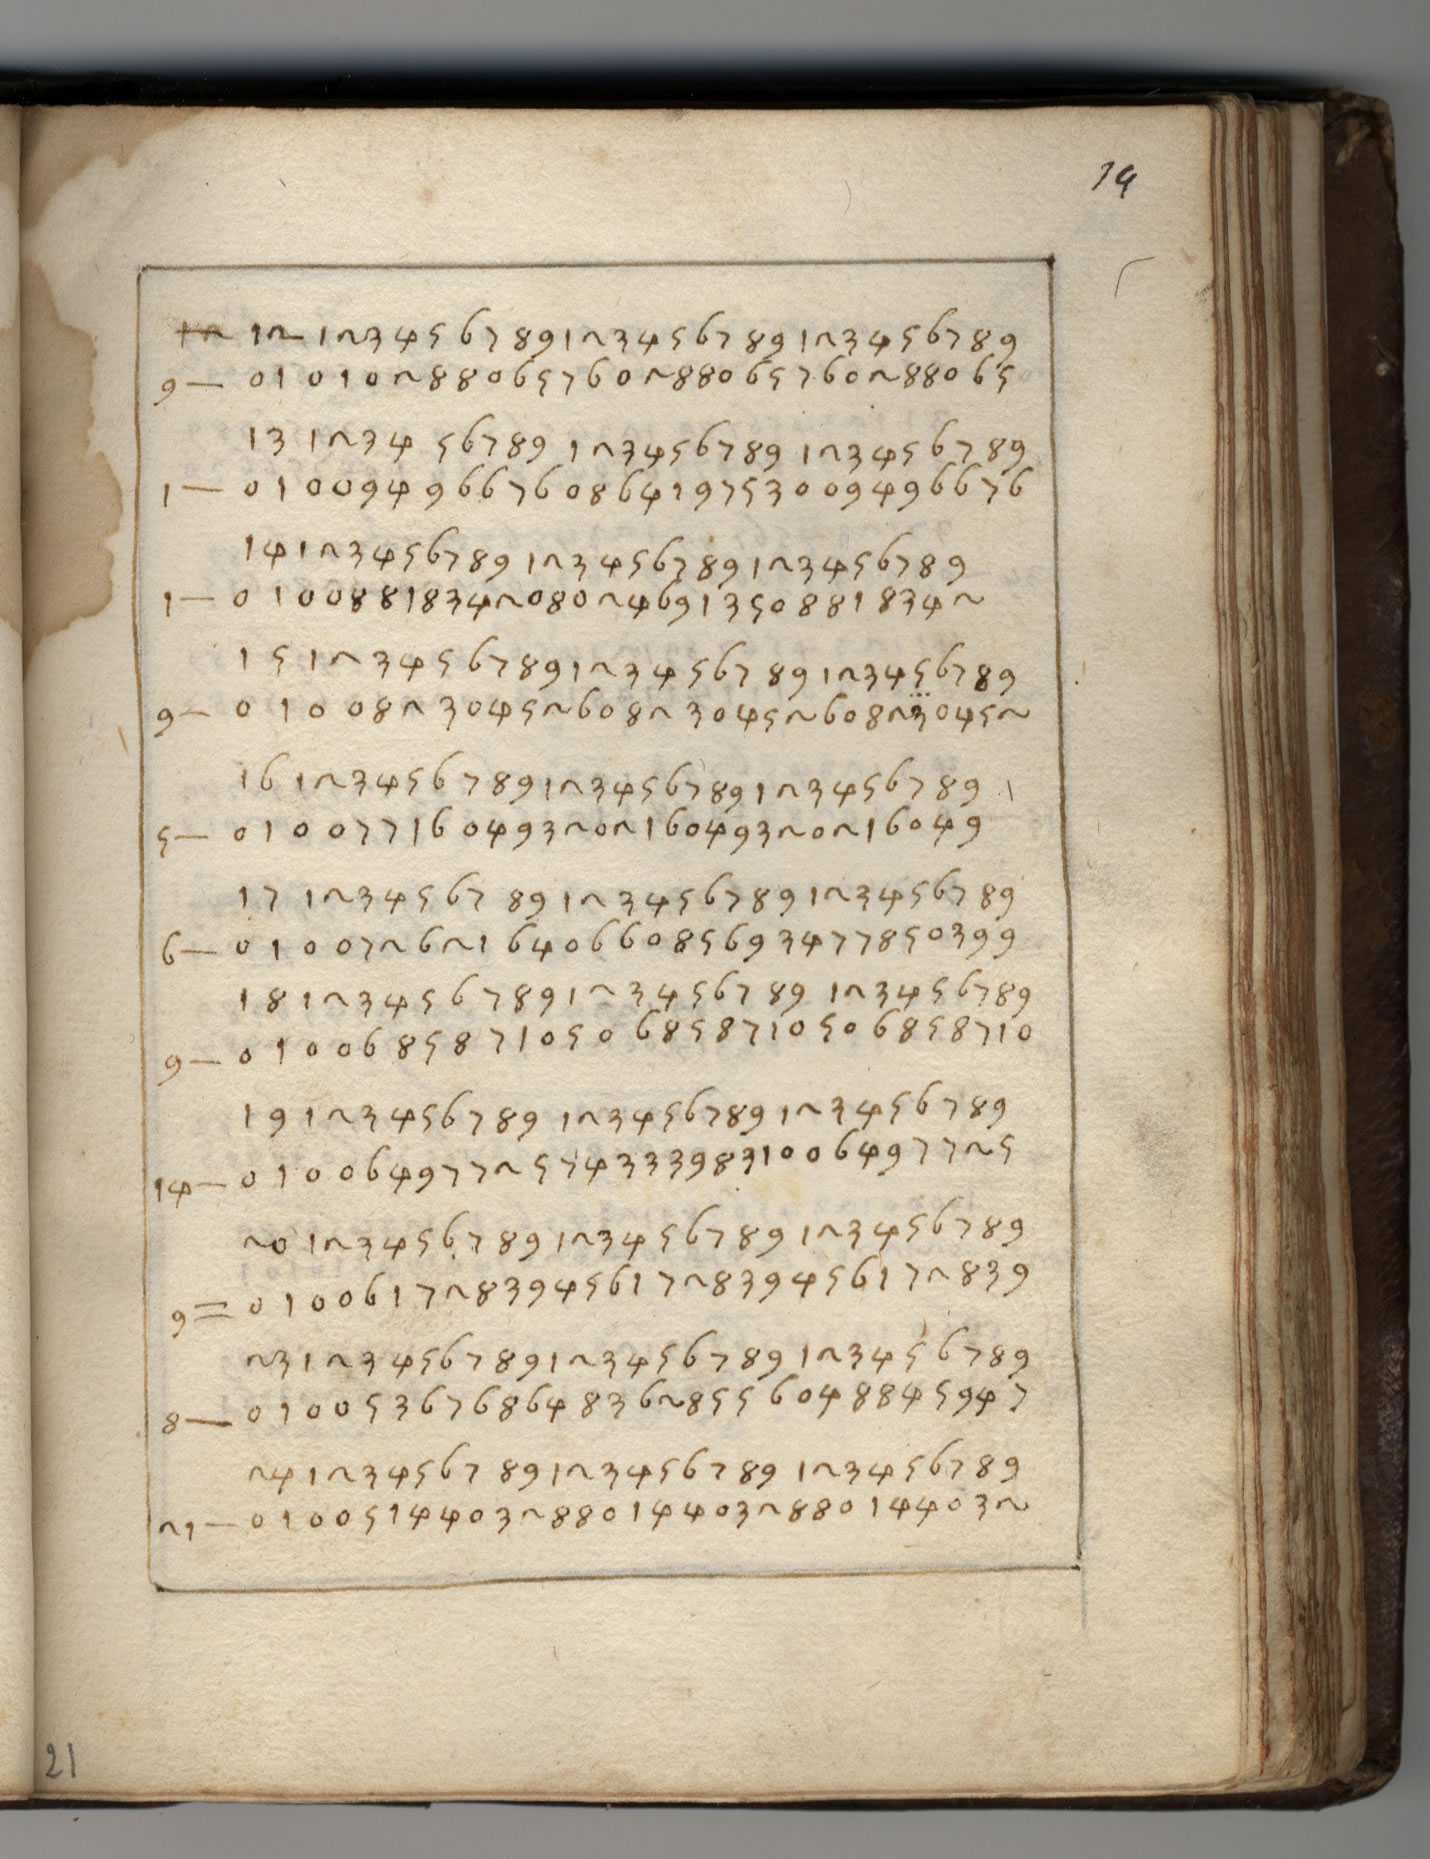 14
12 12 123456789123456789123456789
9— 01010288065760288065760288065
13 123456789 123456789 123456789
1— 01009496676086419753009496676
14 123456789 123456789 123456789
1— 01008818342080246913508818342
15 123456789123456789 123456789
9— 01008230452608230452608230452
16 123456789123456789123456789
5— 01007716049320216049320216049
17 123456789 123456789 123456789
6— 01007262164066085693477850399
18 123456789123456789 123456789
9— 01006858710506858710506858710
19 123456789 123456789 123456789
14— 01006497725743339831006497725
20 123456789 123456789 123456789
9= 01006172839456172839456172839
23 123456789123456789 123456789
8— 01005367686483628556048845947
24 123456789123456789 123456789
21— 01005144032880144032880144032
21